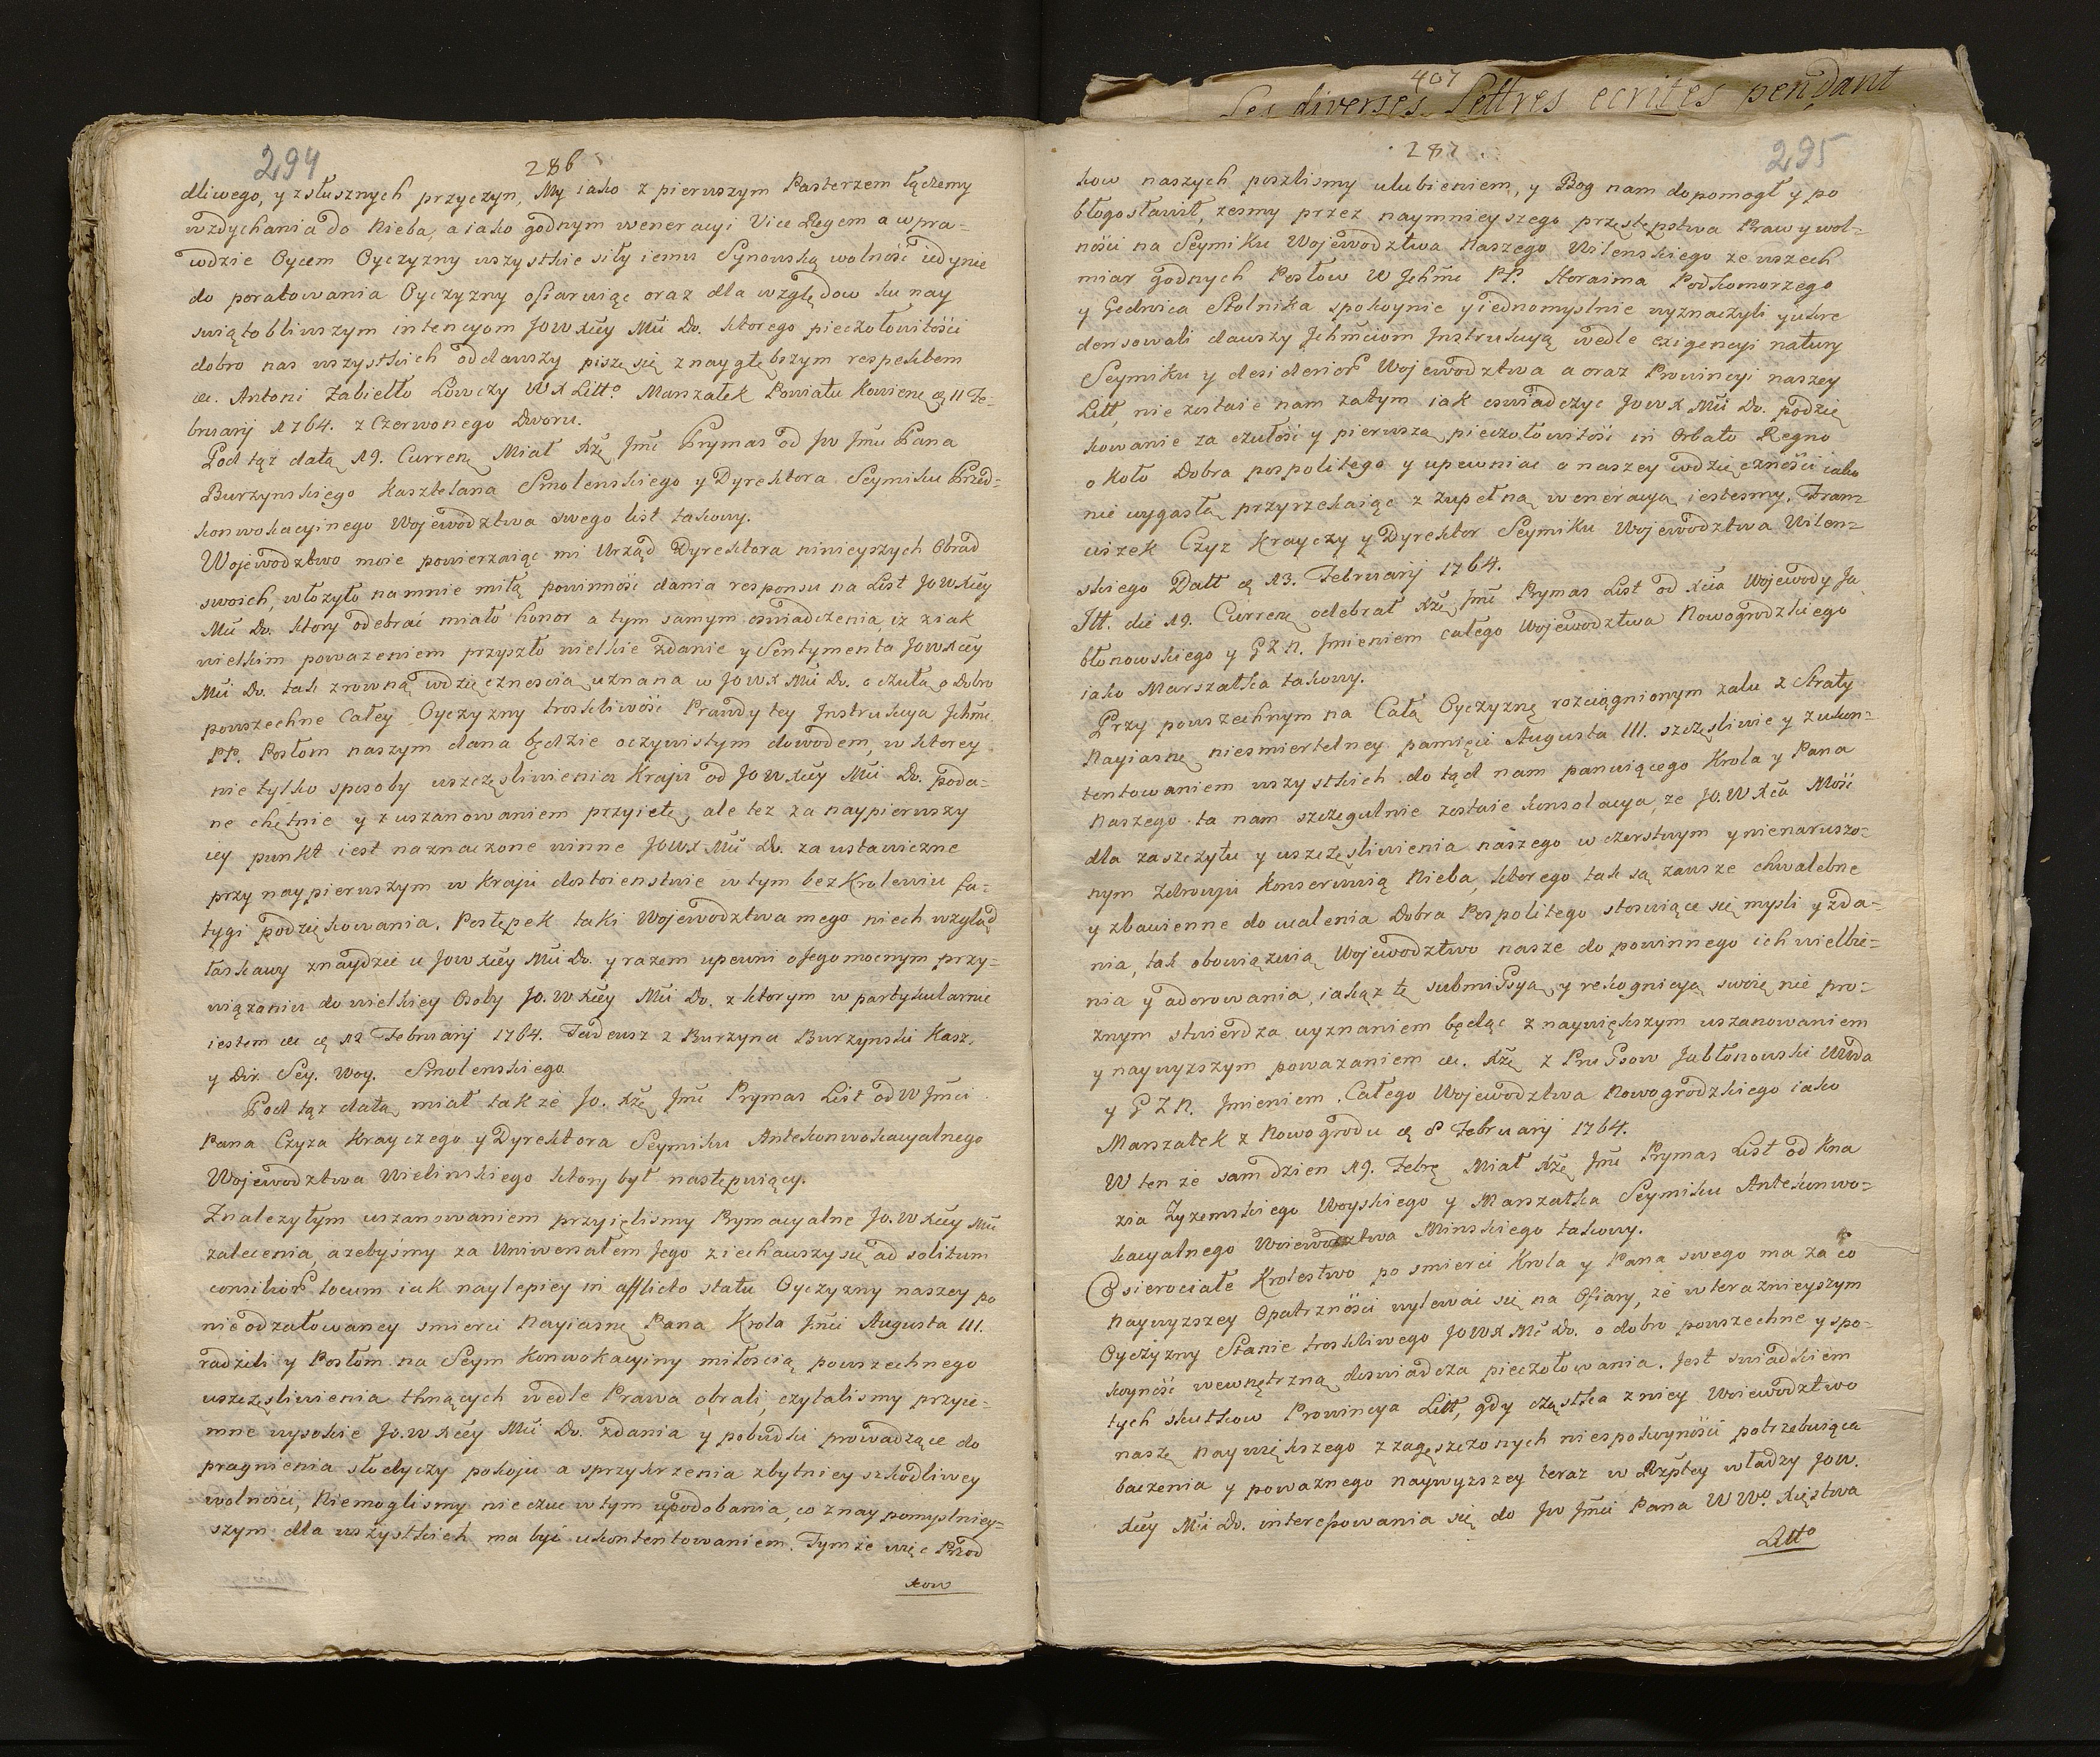 294
286
dliwego, y zsłusznych przyczyn, My iako z pierwszym Pasterzem łączemy
wzdychania do Nieba, a iako godnym weneracyi Vice Regem a wpra=
wdzie Oycem Oyczyzny wszystkie siły iemu Synowską wolność iedynie
do poratowania Oyczyzny ofiaruiąc oraz dla względow ku nay
swiątobliwszym intencyom JOWXcey Mci Do. ktorego pieczołowitości
dobro nas wszystkich oddawszy piszę się z naygłębszym respektem
&c. Antoni Zabiełło Łowczy WX Litto Marszałek Powiatu Kowienę 11 Fe=
bruarij 1764. z Czerwonego Dworu.
Pod tąż datą 19. Currenę Miał Xże Jmć Prymas od Jw Jmci Pana
Burzynskiego Kasztelana Smolenskiego y Dyrektora Seymiku Przed=
konwokacyinego Wojewodztwa swego list takowy.
Wojewodztwo moie powierzaiąc mi Urząd Dyrektora ninieyszych Obrad
swoich, włożyło na mnie miłą powinność dania responsu na List JOWXcey
Mci Do. ktory odebrać miało honor a tym samym oswiadczenia, iz ziak
wielkim poważeniem przyszło wielkie Zdanie y Sentymenta JOWXcey
Mci Do. tak zrowną wdzięcznescia uznana w JOWX Mci Do. o czuła o dobro
powszechne Całey Oyczyzny troskliwość Prawdy tey Instrukcya Jchmc
PP. Posłom naszym dana będzie oczywistym dowodem, w ktorey
nie tylko sposoby uszczęsliwienia Kraju od JOWXcey Mci Do. poda=
ne chętnie y z uszanowaniem przyiete, ale tez za naypierwszy
iey punkt iest naznaczone winne JOWX Mci Do. za ustawiczne
przy naypierwszym w Kraju dostoienstwie w tym bezKrolewiu fa=
tygi podziękowania. Postępek taki Wojewodztwa mego niech wzgląd
łaskawy znaydzie u JOWXcey Mci Do. y razem upewni o Jego mocnym przy=
wiązaniu do wielkiey Osoby JO.WXcey Mci Do. z ktorym w partykularnie
iestem &c 12 Februarij 1764. Tadeusz z Burzyna Burzynski Kasz.
y Dir. Sey. Woy. Smolenskiego
Pod tąż datą miał także Jo. Xże Jmć Prymas List od W Jmci
Pana Czyza Krayczego y Dyrektora Seymiku Antekonwokacyalnego
Wojewodztwa Wielinskiego ktory był następuiący.
Znależytym uszanowaniem przyięlismy Prymacyalne Jo.WXcey Mci
zalecenia, ażebyśmy za Uniwersałem Jego ziechawszy się ad solitum
consilior locum iak naylepiey in afflicto statu Oyczyzny naszey po
nieodżałowaney smierci Nayiasnę Pana Krola Jmci Augusta III.
radzili y Posłom na Seym Konwokacyiny miłością powszechnego
uszczęsliwienia tknących wedle Prawa obrali, czytalismy przyie=
mne wysokie Jo.WXcey Mci Do. zdania y pobudki prowadzące do
pragnienia słodyczy pokoju a sprzykrzenia zbytniey szkodliwey
wolności, Niemoglismy nie czuć w tym upodobania, co z nay pomyslniey=
szym dla wszystkich ma być ukontentowaniem. Tymże więc Przod
kow
407
Les diverses Lettres ecrites pendant
287
295
kow naszych poszlismy ulubieniem, y Bog nam dopomogł y po
błogosławił, zesmy przez naymnieyszego przestępstwa Praw y wol=
ności na Seymiku Wojewodztwa Naszego Wilenskiego ze wszech
miar godnych Posłow W Jchmć PP. Horaima Podkomorzego
y Gedwica Stolnika spokoynie y iednomyslnie wyznaczyli y ukre
densowali dawszy Jchmciom Instrukcyą wedle exigencyi natury
Seymiku y desiderior Wojewodztwa a oraz Prowincyi naszey
Litt, nie zostaie nam zatym iak oswiadczyc JOWX Mci Do. podzię
kowanie za czułość y pierwszą pieczołowitość in Orbato Regno
około Dobra pospolitego y upewniac o naszey wdzięczności iako
nie wygasłą przyrzekaiąc z zupełną weneracyą iestesmy. Fran=
ciszek Czyz Krayczy y Dyrektor Seymiku Wojewodztwa Wilen=
skiego Datt 13. Februarij 1764.
Itt. die 19. Currenę odebrał Xże Jmć Prymas List od Xcia Wojewody Ja
błonowskiego y GZN. Jmieniem całego Wojewodztwa Nowogrodzkiego
iako Marszałka takowy.
Przy powszechnym na Całą Oyczyznę rozciągnionym żalu z Straty
Nayiasnę niesmiertelney pamięci Augusta III. szczęsliwie y z ukon=
tentowaniem wszystkich do tąd nam panuiącego Krola y Pana
Naszego ta nam szczegulnie zostaie konsolacya, że JO.WXca Mość
dla zaszczytu y uszczęsliwienia naszego w czerstwym y nienaruszo=
nym Zdrowju konserwuią Nieba, ktorego tak są zawsze chwalebne
y zbawienne do ocalenia Dobra Pospolitego stosuiące się mysli y zda=
nia, tak obowiązuią Wojewodztwo nasze do powinnego ich wielbie=
nia y adorowania, iakąz tę submissyą y rekognicyą swoię nie pro=
żnym stwierdza uyznaniem będąc z naywiększym uszanowaniem
y naywyzszym poważaniem &c. Xże z Prussow Jabłonowski Wda
y GZN. Jmieniem Całego Wojewodztwa Nowogrodzkiego iako
Marszałek z Nowogrodu 8 Februarij 1764.
W ten że sam dzien 19. Febrę Miał Xże Jmć Prymas List od Kna
zia Zyzemskiego Woyskiego y Marszałka Seymiku Antekonwo=
kacyalnego Woiewodztwa Minskiego takowy.
Osierociałe Krolestwo po smierci Krola y Pana swego ma za co
Naywyzszey Opatrzności wylewać się na Ofiary, że w teraznieyszym
Oyczyzny Stanie troskliwego JOWX Mć Do. o dobro powszechne y spo=
koyność wewnętrzną doswiadcza pieczołowania. Jest swiadkiem
tych skutkow Prowincya Litt, gdy cząstka z niey Woiewodztwo
nasze naywiększego z zagęszczonych niespokoyności potrzebuiąca
baczenia y poważnego naywyzszey teraz w Rzptey władzy JOW.
Xcey Mci Do. interesowania się do Jw Jmci Pana WWo Xięstwa
Litto